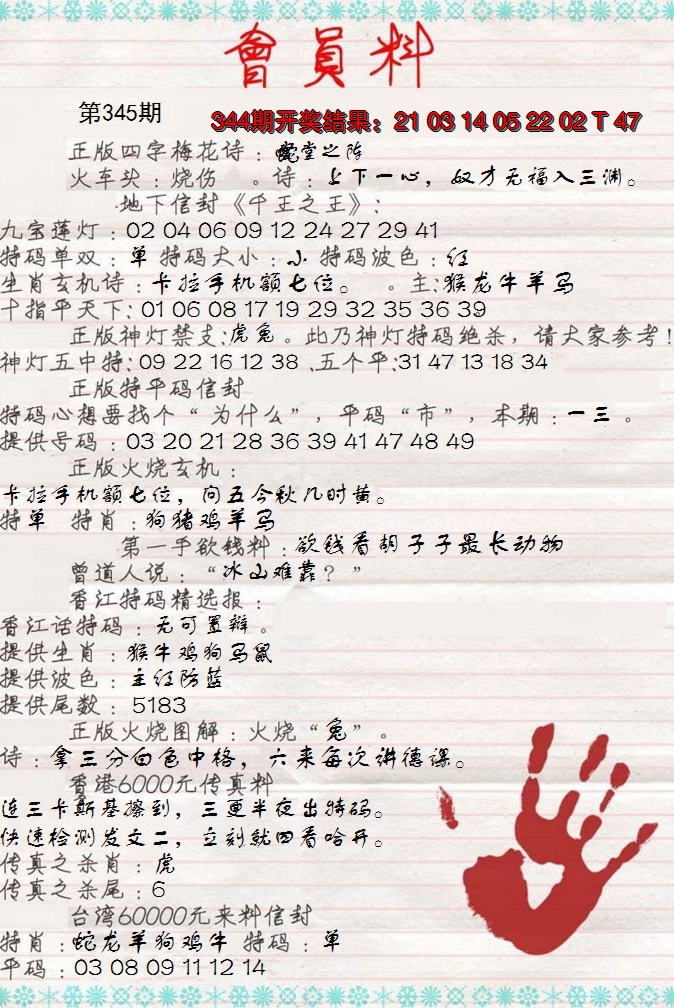 會員料
第345期
344期开奖结果：21 03 14 05 22 02 T 47
正版四字梅花诗：蛇堂之阵
火车头：烧伤 。诗：上下一心，奴才无福入三渊。
地下信封《千王之王》：
九宝莲灯：02 04 06 09 12 24 27 29 41
特码单双：单 特码大小：小 特码波色：红
生肖玄机诗：卡拉手机额七位。 。主：猴龙牛羊马
十指平天下：01 06 08 17 19 29 32 35 36 39
正版神灯禁支：虎兔。此乃神灯特码绝杀，请大家参考！
神灯五中特：09 22 16 12 38 .五个平：31 47 13 18 34
正版特平码信封
特码心想要找个“为什么”，平码“市”，本期：一三 。
提供号码：03 20 21 28 36 39 41 47 48 49
正版火烧玄机：
卡拉手机额七位，问五今秋几时黄。
特单 特肖：狗猪鸡羊马
第一手欲钱料：欲钱看胡子子最长动物
曾道人说：“冰山难靠？”
香江特码精选报：
香江话特码：无可置辩。
提供生肖：猴牛鸡狗马鼠
提供波色：主红防蓝
提供尾数：5183
正版火烧图解：火烧“兔”。
诗：拿三分白色中格，六来每次讲德课。
香港6000元传真料
追三卡斯基擦到，三更半夜出特码。
快速检测发文二，立刻就四看哈开。
传真之杀肖：虎
传真之杀尾：6
台湾60000元来料信封
特肖：蛇龙羊狗鸡牛 特码：单
平码：03 08 09 11 12 14